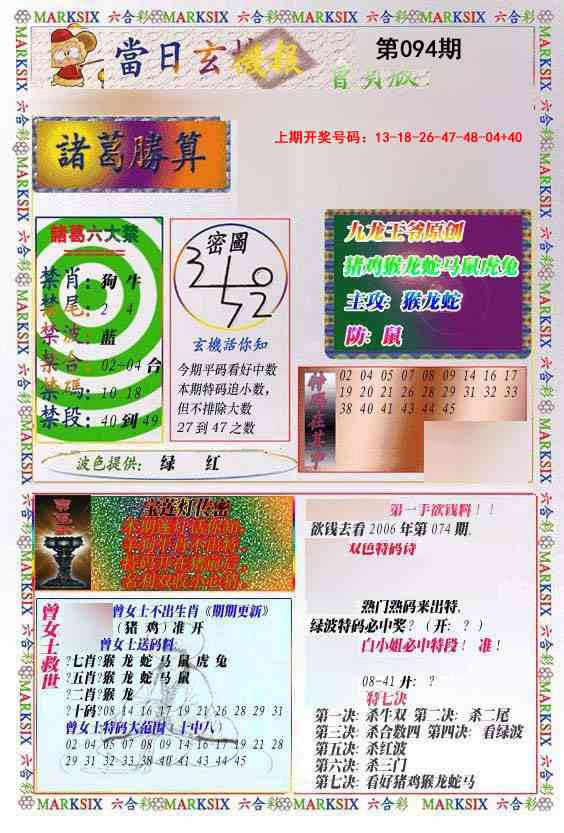 MARKSIX 六合彩 MARKSIX 六合彩 MARKSIX 六合彩 MARKSIX 六合彩
當日玄機報
第094期
上期开奖号码：13-18-26-47-48-04+40
諸葛勝算
諸葛六大禁
禁肖：狗 牛
禁尾：2 4
禁波：蓝
禁合：02-04合
禁碼：10.18
禁段：40到49
密圖
玄機活你知
今期平码看好中数
本期特码追小数，
但不排除大数
27到47之数
九龙王爷原创
猪鸡猴龙蛇马鼠虎兔
主攻：猴龙蛇
防：鼠
特码在其中
02 04 05 07 08 09 14 16 17
19 20 21 26 28 29 31 32 33
38 40 41 43 44 45
波色提供： 绿 红
宝莲灯传密
曾女士救世
曾女士不出生肖《期期更新》
（猪 鸡）准开
曾女士送码料
?七肖?猴 龙 蛇 马 鼠 虎 兔
?五肖?猴 龙 蛇 马 鼠
?二肖?猴 龙
?十码?08 14 16 17 19 21 26 28 29 31
曾女士特码大范围（十中八）
02 04 05 07 08 09 14 16 17 19 21 28
29 31 32 33 38 40 41 43 44 45
第一手欲钱料！！
欲钱去看2006年第074期.
双色特码诗
熱门熱码来出特，
绿波特码必中奖？（开：？）
白小姐必中特段！ 准！
08-41 开：？
特七决
第一决：杀牛双 第二决：杀二尾
第三决：杀合数四 第四决：看绿波
第五决：杀红波
第六决：杀三门
第七决：看好猪鸡猴龙蛇马
MARKSIX 六合彩 MARKSIX 六合彩 MARKSIX 六合彩 MARKSIX 六合彩